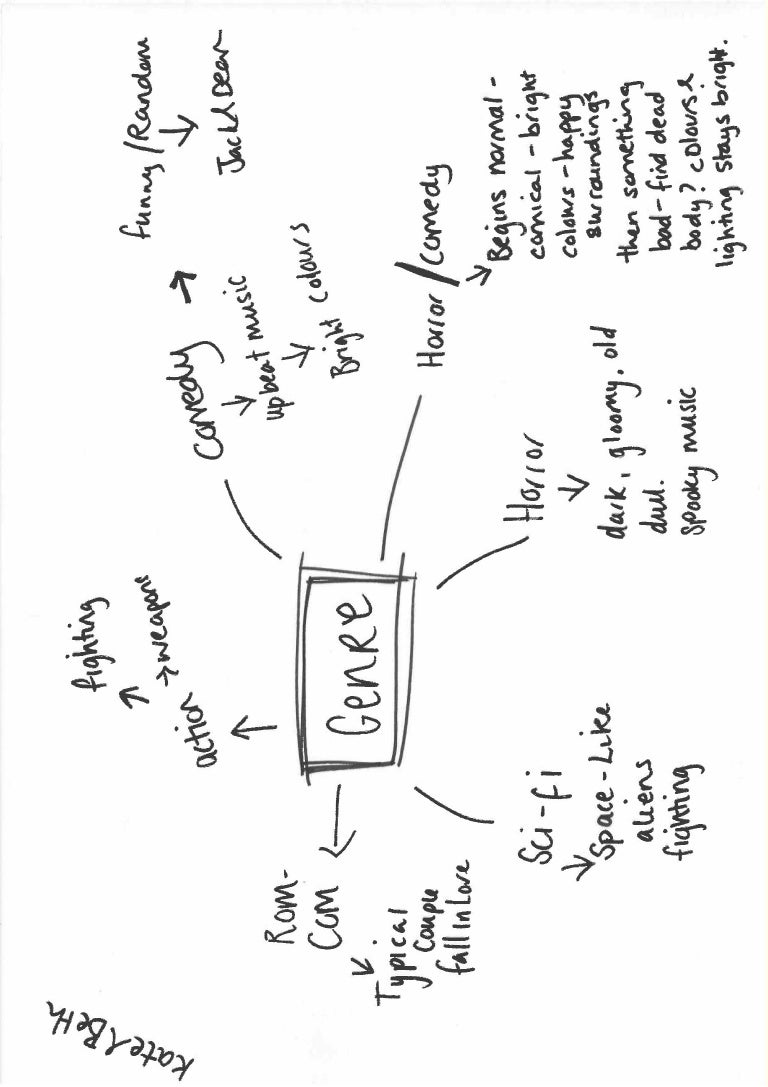 Kate & Beth
Genre
Rom-
Com
Typical
couple
fall in love
action
fighting
weapons
Comedy
funny / Random
Jack & Dean
upbeat music
Bright colours
Horror / comedy
Begins normal -
comical - bright
colours - happy
surroundings
then something
bad - find dead
body? colours &
lighting stays bright.
Horror
dark, gloomy, old
dull.
Spooky music
Sci-fi
Space-Like
aliens
fighting